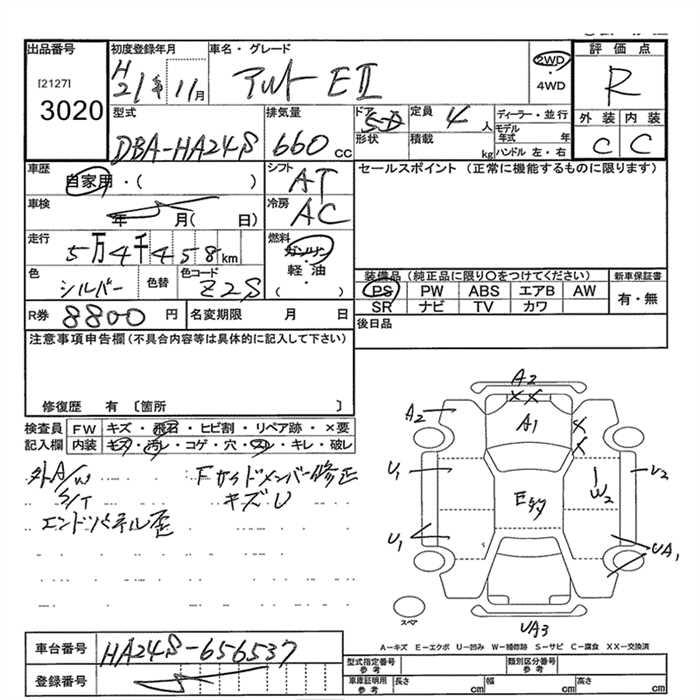 出品番号
[2127]
3020
初度登録年月
H21年 11月
車名・グレード
アルト EⅡ
2WD
・
4WD
評価点
R
外装 内装
C C
型式
DBA-HA24S
排気量
660 cc
ドア 5D
形状
定員 4 人
積載 kg
ディーラー・並行
モデル年式 年
ハンドル 左・右
車歴
自家用・( )
シフト
AT
車検
年 月( 日)
冷房
AC
走行
5万4千458km
燃料
ガソリン
・
軽油
・
( )
色
シルバー
色替
色コード
Z2S
R券 8800 円
名変期限 月 日
セールスポイント (正常に機能するものに限ります)
装備品(純正品に限り○をつけてください)
新車保証書
PS PW ABS エアB AW
SR ナビ TV カワ
有・無
後日品
注意事項申告欄(不具合内容等は具体的に記入して下さい)
修復歴 有 〔箇所 〕
検査員記入欄
FW キズ・飛石・ヒビ割・リペア跡・×要
内装 キズ・汚レ・コゲ・穴・スレ・キレ・破レ
外A/W
S/T
エンドパネル歪
Fサイドメンバー修正
キズU
A2
XX
A2
A1
X
X
U1
U2
W2
Eタタ
U1
UA1
スペア
UA3
A-キズ E-エクボ U-凹み W-補修跡 S-サビ C-腐食 XX-交換済
車台番号
HA24S-656537
登録番号
型式指定番号 参考
類別区分番号 参考
車庫証明用 参考
長さ cm
幅 cm
高さ cm